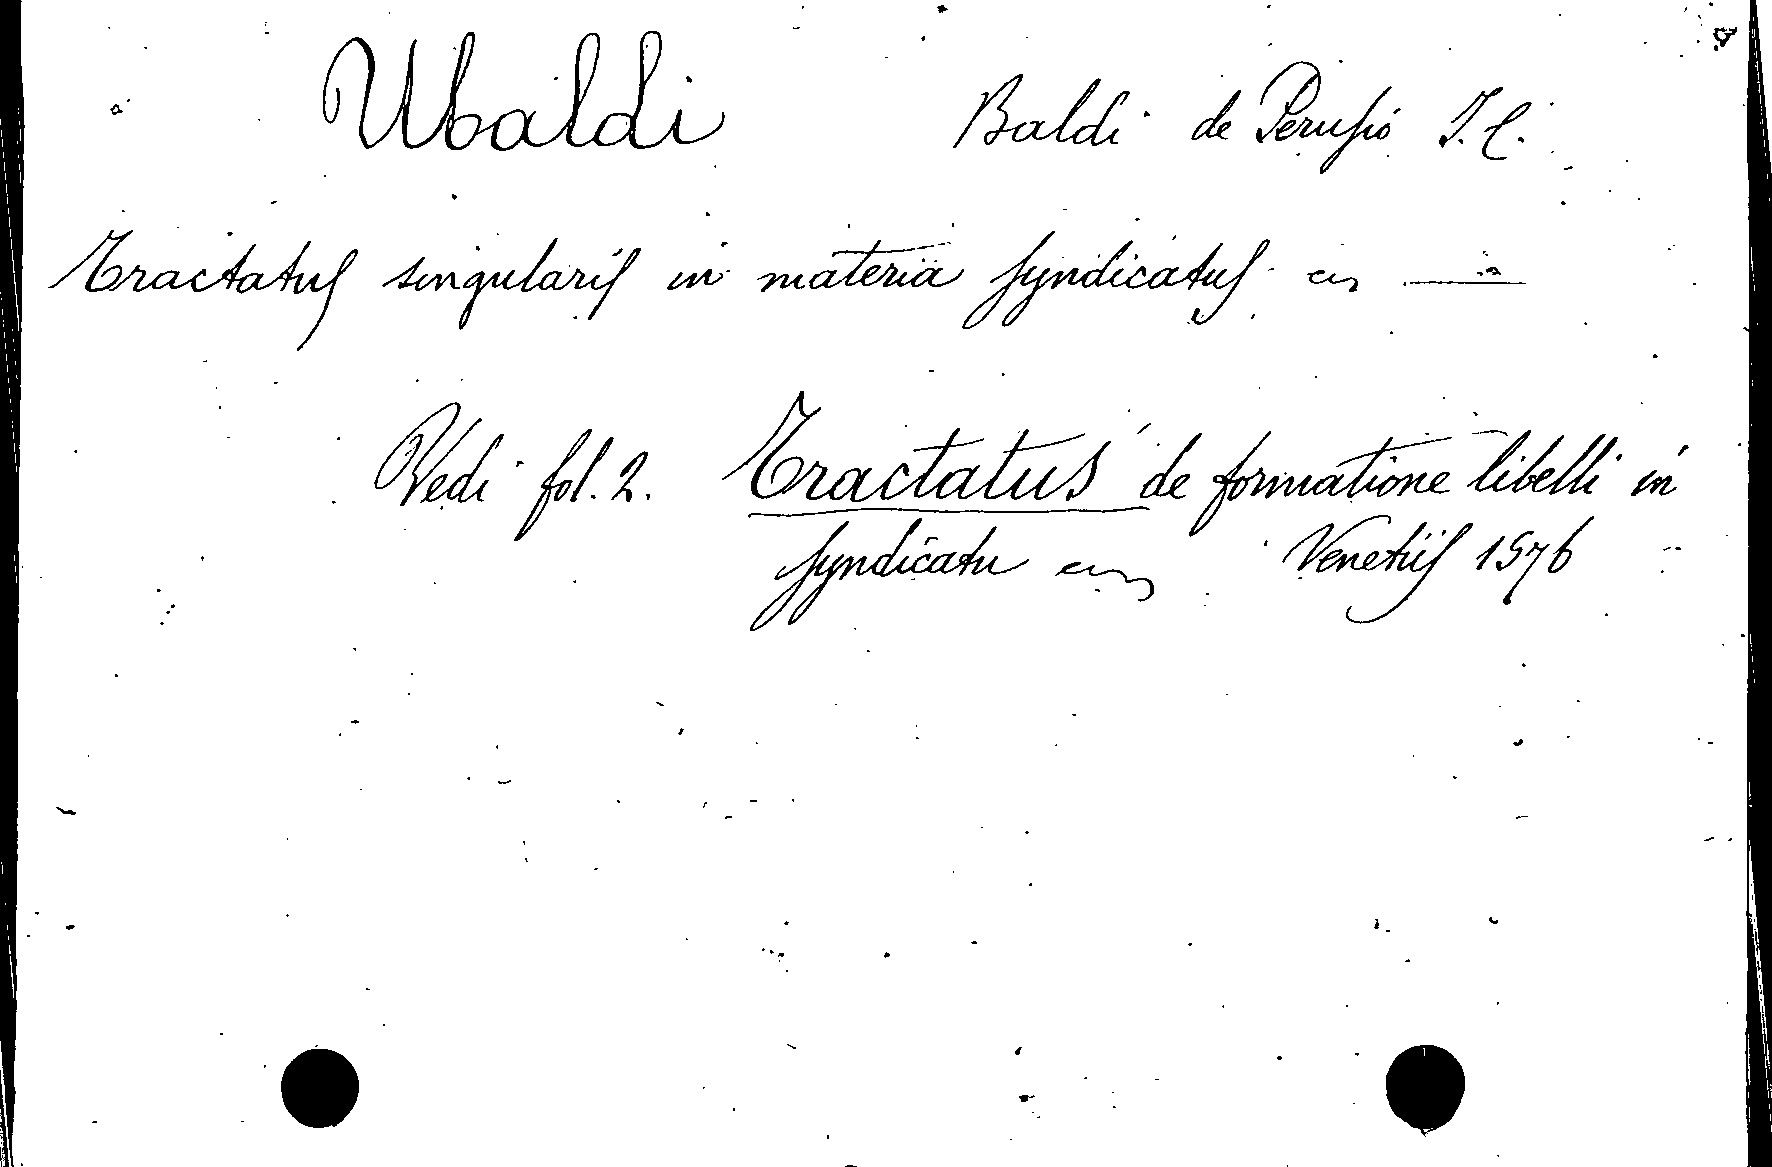 Ubaldi Baldi de Perusio J. C.
Tractatus singularis in materia syndicatus
Vedi fol. 2. Tractatus de formatione libelli in
syndicatu Venetiis 1576